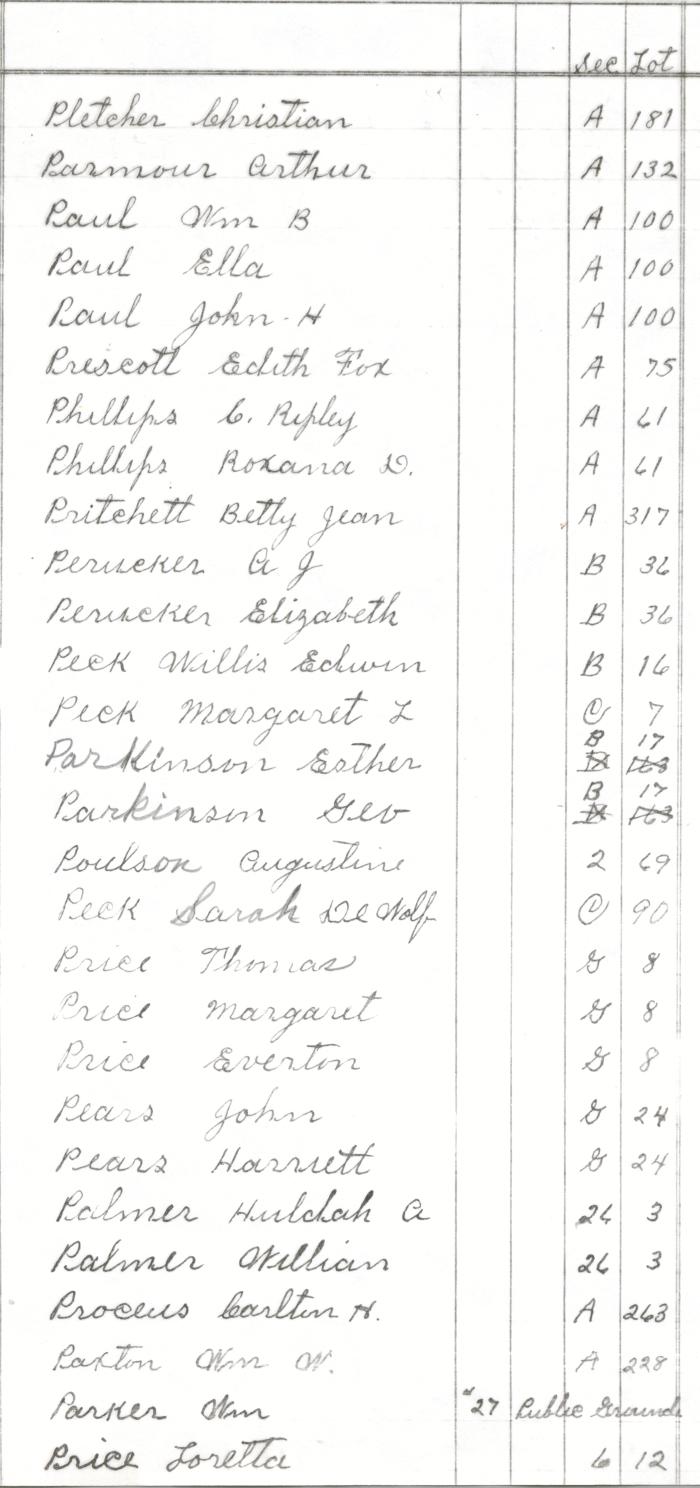 Sec Lot
Pletcher Christian A 181
Parmour Arthur A 132
Paul Wm B A 100
Paul Ella A 100
Paul John H A 100
Prescott Edith Fox A 75
Phillips C. Ripley A 61
Phillips Roxana D. A 61
Pritchett Betty Jean A 317
Perucker A J B 36
Perucker Elizabeth B 36
Peck Willis Edwin B 16
Peck Margaret L C 7
B 17
Parkinson Esther
B 17
Parkinson Geo
Poulson Augustine 2 69
Peck Sarah De Wolf C 90
Price Thomas G 8
Price Margaret G 8
Price Everton G 8
Pears John G 24
Pears Harriett G 24
Palmer Huldah A 26 3
Palmer William 26 3
Proceus Carlton H. A 263
Paxton Wm W. A 228
Parker Wm #27 Public Grounds
Price Loretta 6 12